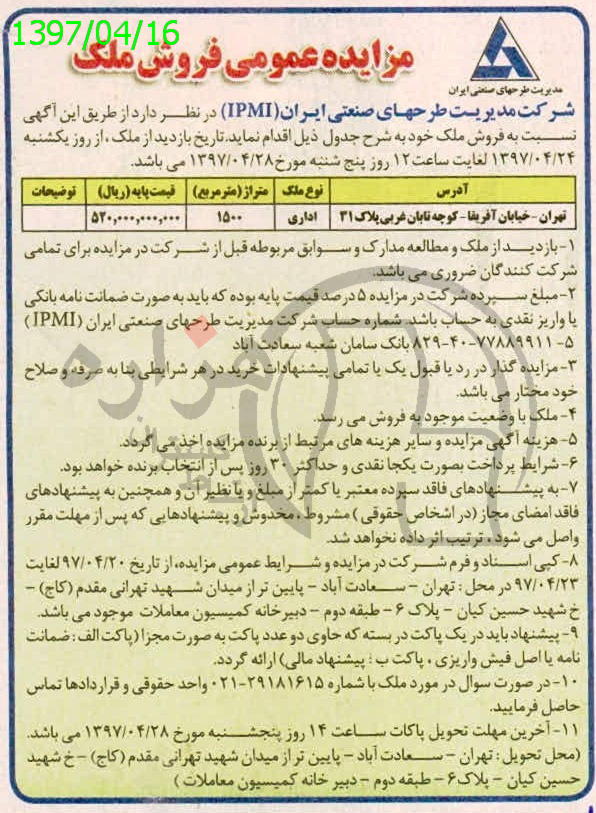 1397/04/16
مدیریت طرحهای صنعتی ایران
مزایده عمومی فروش ملک
شرکت مدیریت طرحهای صنعتی ایران (IPMI) در نظر دارد از طریق این آگهی
نسبت به فروش ملک خود به شرح جدول ذیل اقدام نماید. تاریخ بازدید از ملک ، از روز یکشنبه
۱۳۹۷/۰۴/۲۴ لغایت ساعت ۱۲ روز پنج شنبه مورخ ۱۳۹۷/۰۴/۲۸ می باشد.
آدرس نوع ملک متراژ (مترمربع) قیمت پایه (ریال) توضیحات
تهران - خیابان آفریقا - کوچه تابان غربی پلاک ۳۱ اداری ۱۵۰۰ ۵۲۰,۰۰۰,۰۰۰,۰۰۰
۱- بازدید از ملک و مطالعه مدارک و سوابق مربوطه قبل از شرکت در مزایده برای تمامی
شرکت کنندگان ضروری می باشد.
۲- مبلغ سپرده شرکت در مزایده ۵ درصد قیمت پایه بوده که باید به صورت ضمانت نامه بانکی
یا واریز نقدی به حساب باشد. شماره حساب شرکت مدیریت طرحهای صنعتی ایران (IPMI)
۵-۸۲۹-۴۰-۷۷۸۸۹۹۱۱ بانک سامان شعبه سعادت آباد
۳- مزایده گذار در رد یا قبول یک یا تمامی پیشنهادات خرید در هر شرایطی بنا به صرفه و صلاح
خود مختار می باشد.
۴- ملک با وضعیت موجود به فروش می رسد.
۵- هزینه آگهی مزایده و سایر هزینه های مرتبط از برنده مزایده اخذ می گردد.
۶- شرایط پرداخت بصورت یکجا نقدی و حداکثر ۳۰ روز پس از انتخاب برنده خواهد بود.
۷- به پیشنهادهای فاقد سپرده معتبر یا کمتر از مبلغ و یا نظیر آن و همچنین به پیشنهادهای
فاقد امضای مجاز (در اشخاص حقوقی) مشروط ، مخدوش و پیشنهادهایی که پس از مهلت مقرر
واصل می شود ، ترتیب اثر داده نخواهد شد.
۸- کپی اسناد و فرم شرکت در مزایده و شرایط عمومی مزایده، از تاریخ ۹۷/۰۴/۲۰ لغایت
۹۷/۰۴/۲۳ در محل : تهران - سعادت آباد - پایین تر از میدان شهید تهرانی مقدم (کاج) -
خ شهید حسین کیان - پلاک ۶ - طبقه دوم - دبیرخانه کمیسیون معاملات موجود می باشد.
۹- پیشنهاد باید در یک پاکت در بسته که حاوی دو عدد پاکت به صورت مجزا (پاکت الف : ضمانت
نامه یا اصل فیش واریزی ، پاکت ب : پیشنهاد مالی) ارائه گردد.
۱۰- در صورت سوال در مورد ملک با شماره ۲۹۱۸۱۶۱۵-۰۲۱ واحد حقوقی و قراردادها تماس
حاصل فرمایید.
۱۱- آخرین مهلت تحویل پاکات ساعت ۱۴ روز پنجشنبه مورخ ۱۳۹۷/۰۴/۲۸ می باشد.
(محل تحویل : تهران - سعادت آباد - پایین تر از میدان شهید تهرانی مقدم (کاج) - خ شهید
حسین کیان - پلاک ۶ - طبقه دوم - دبیر خانه کمیسیون معاملات )
هزاره